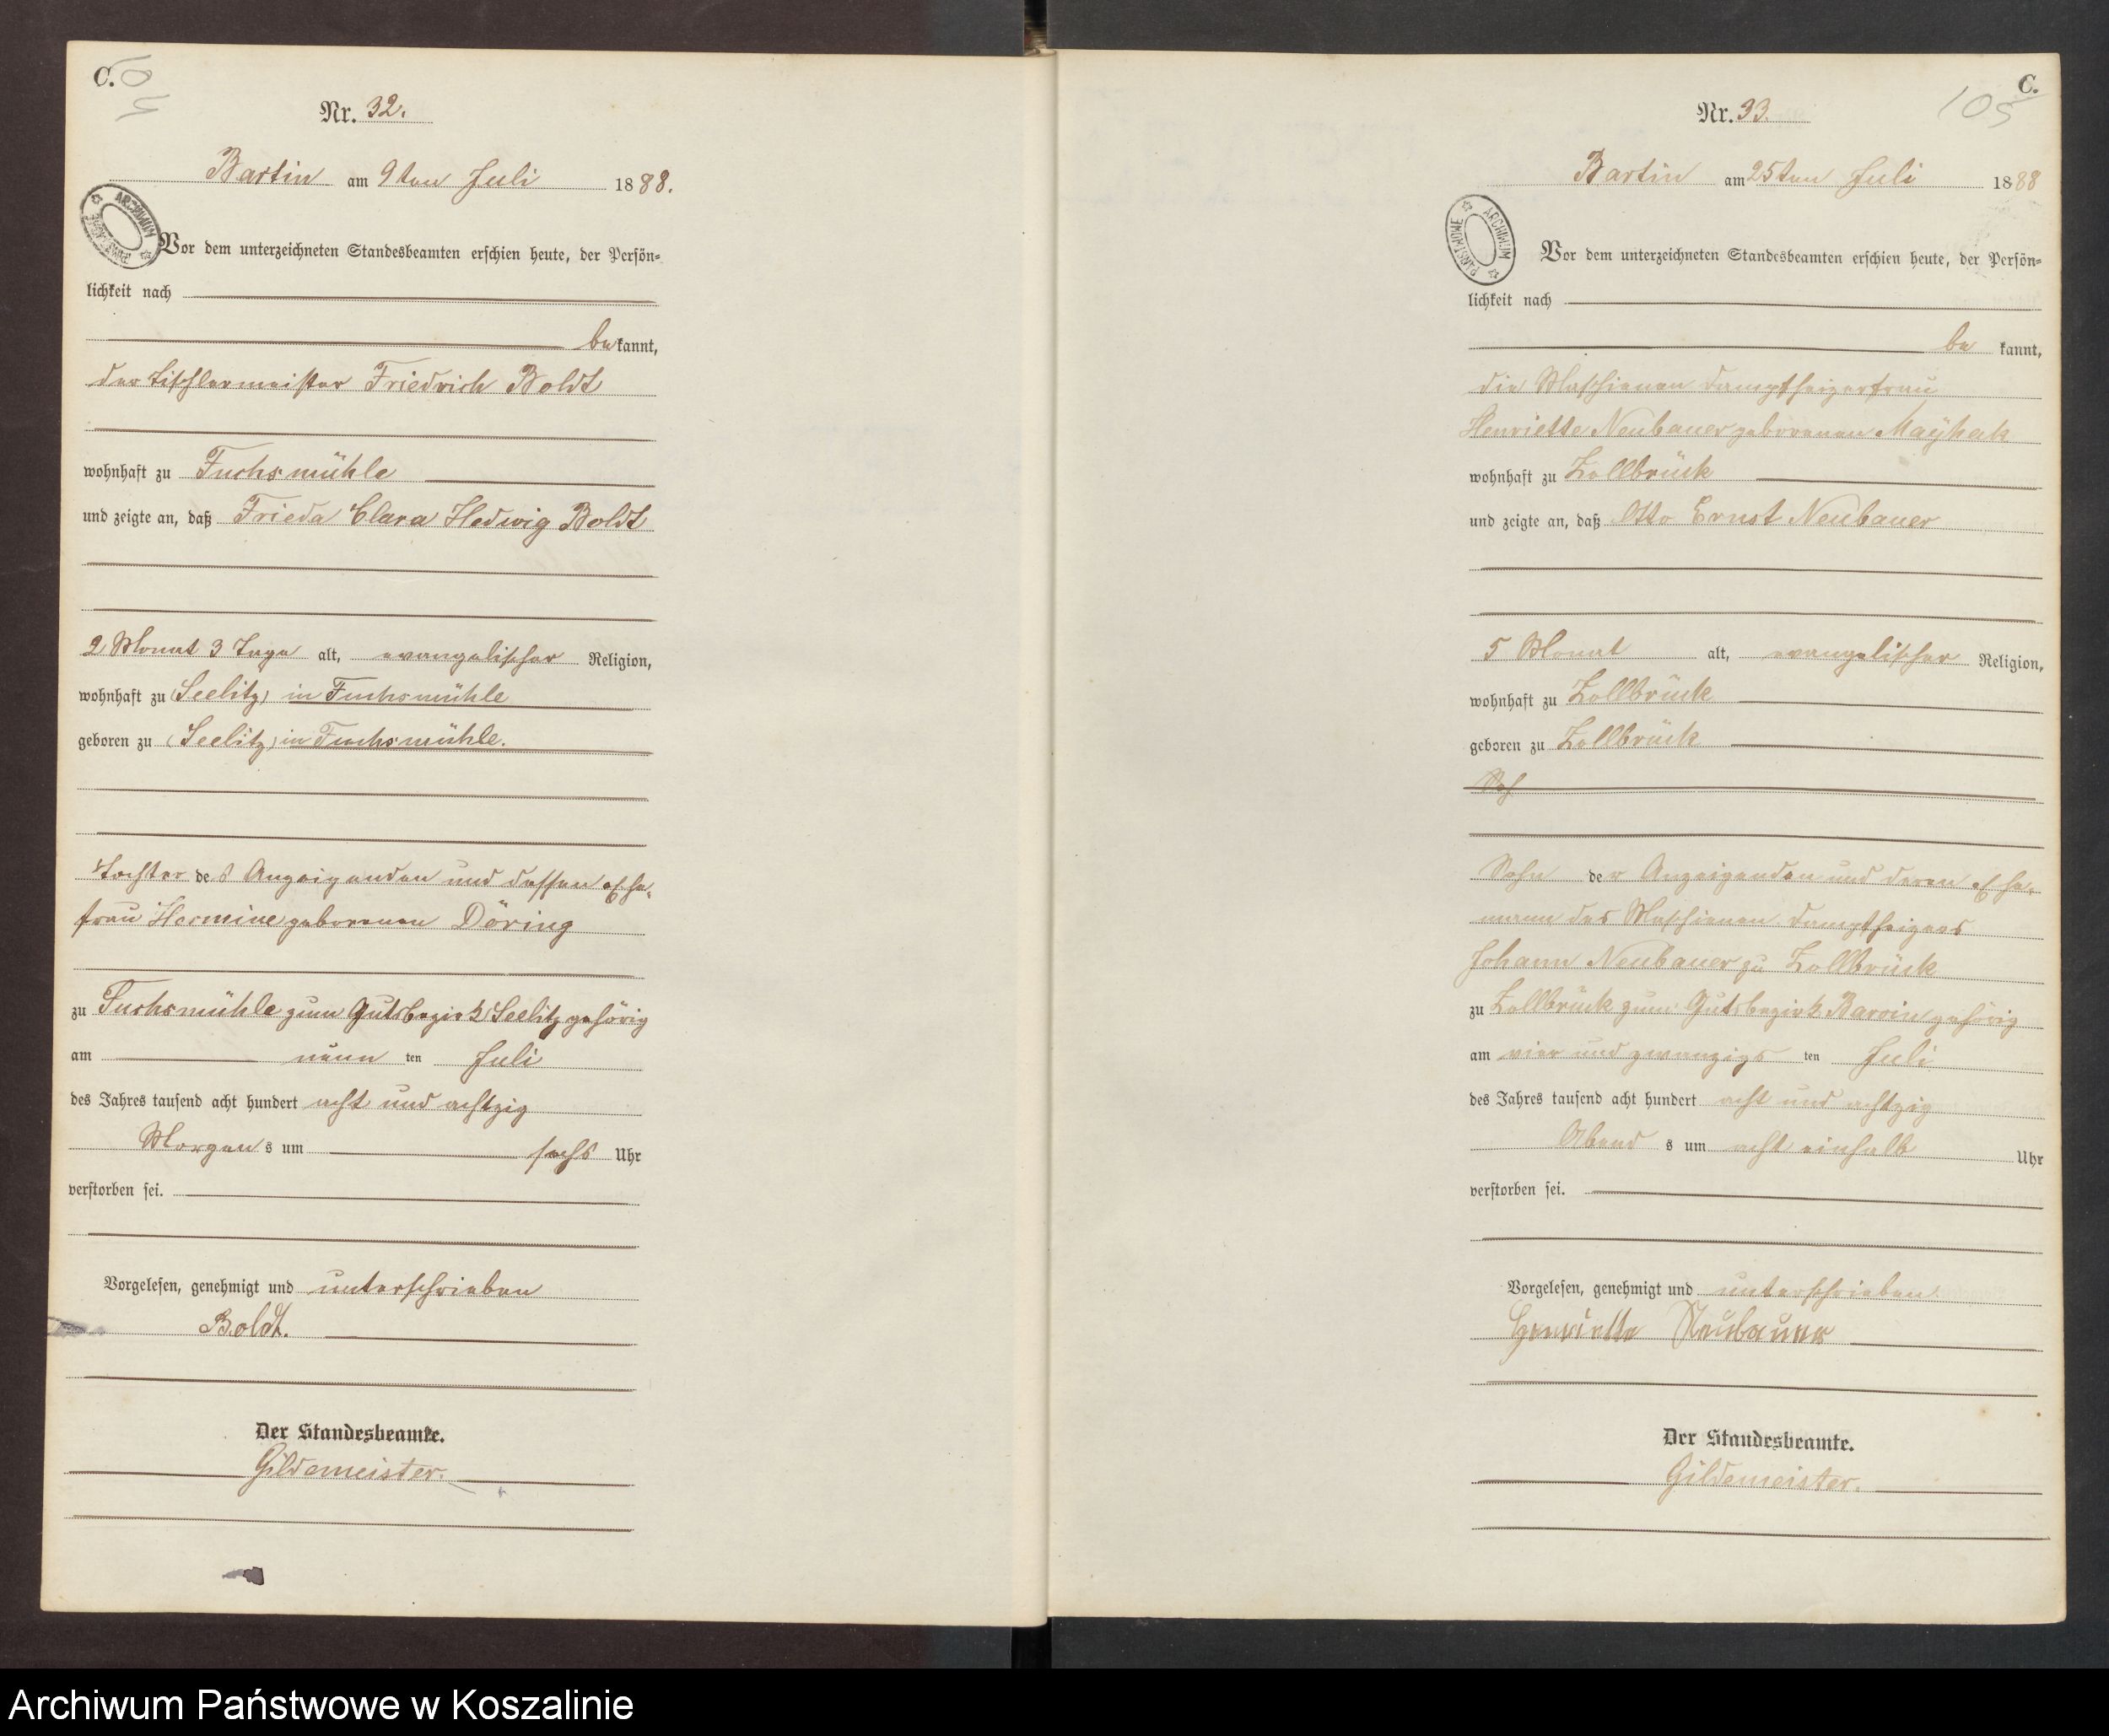 C.
Nr. 32.
Bartin am 9ten Juli 1888.
ARCHIWUM PAŃSTWOWE
Vor dem unterzeichneten Standesbeamten erschien heute, der Persön=
lichkeit nach
bekannt,
der Tischlermeister Friedrich Boldt
wohnhaft zu Fuchsmühle
und zeigte an, daß Frieda Clara Hedwig Boldt
2 Monat 3 Tage alt, evangelischer Religion,
wohnhaft zu (Seelitz) in Fuchsmühle
geboren zu (Seelitz) in Fuchsmühle.
Tochter des Anzeigenden und dessen Ehe=
frau Hermine geborenen Döring
zu Fuchsmühle zum Gutsbezirk Seelitz gehörig
am neun ten Juli
des Jahres tausend acht hundert acht und achtzig
Morgens um sechs Uhr
verstorben sei.
Vorgelesen, genehmigt und unterschrieben
Boldt.
Der Standesbeamte.
Gildemeister.
C.
105
Nr. 33.
Bartin am 25ten Juli 1888
ARCHIWUM PAŃSTWOWE
Vor dem unterzeichneten Standesbeamten erschien heute, der Persön=
lichkeit nach
be kannt,
die Maschienen Dampfheizerfrau
Henriette Neubauer geborenen Mayhak
wohnhaft zu Zollbrück
und zeigte an, daß Otto Ernst Neubauer
5 Monat alt, evangelischer Religion,
wohnhaft zu Zollbrück
geboren zu Zollbrück
Soh
Sohn der Anzeigenden und deren Ehe=
mann des Maschienen Dampfheizers
Johann Neubauer zu Zollbrück
zu Zollbrück zum Gutsbezirk Barvin gehörig
am vier und zwanzigs ten Juli
des Jahres tausend acht hundert acht und achtzig
Abend s um acht einhalb Uhr
verstorben sei.
Vorgelesen, genehmigt und unterschrieben
Henriette Neubauer
Der Standesbeamte.
Gildemeister.
Archiwum Państwowe w Koszalinie